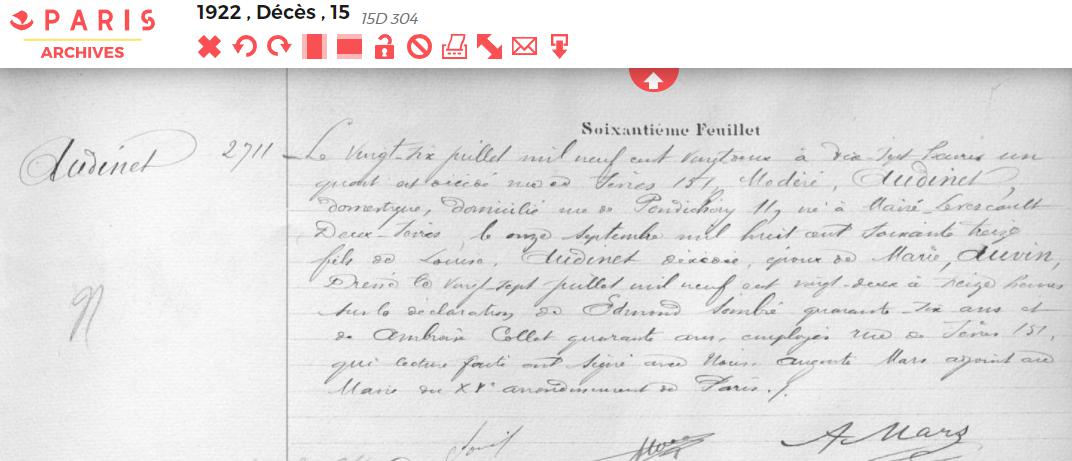 PARIS
ARCHIVES
1922 , Décès , 15 15D 304
Soixantième Feuillet
Audinet 2711 Le vingt-six juillet mil neuf cent vingt deux à dix-sept heures un
quart est décédé rue de Sèvres 151, Médéré, Audinet,
domestique, domicilié rue de Pondichéry 11, né à Mairé-Levescault
Deux-Sèvres, le onze septembre mil huit cent soixante treize
fils de Louise, Audinet décédée, époux de Marie, Auvin,
Dressé le vingt-sept juillet mil neuf cent vingt-deux à seize heures
sur la déclaration de Edmond quarante-six ans et
de Ambroise Collet quarante ans, employés rue de Sèvres 151,
qui lecture faite ont signé avec Nous, Auguste Mars adjoint au
Maire du XVe arrondissement de Paris.
A. Mars